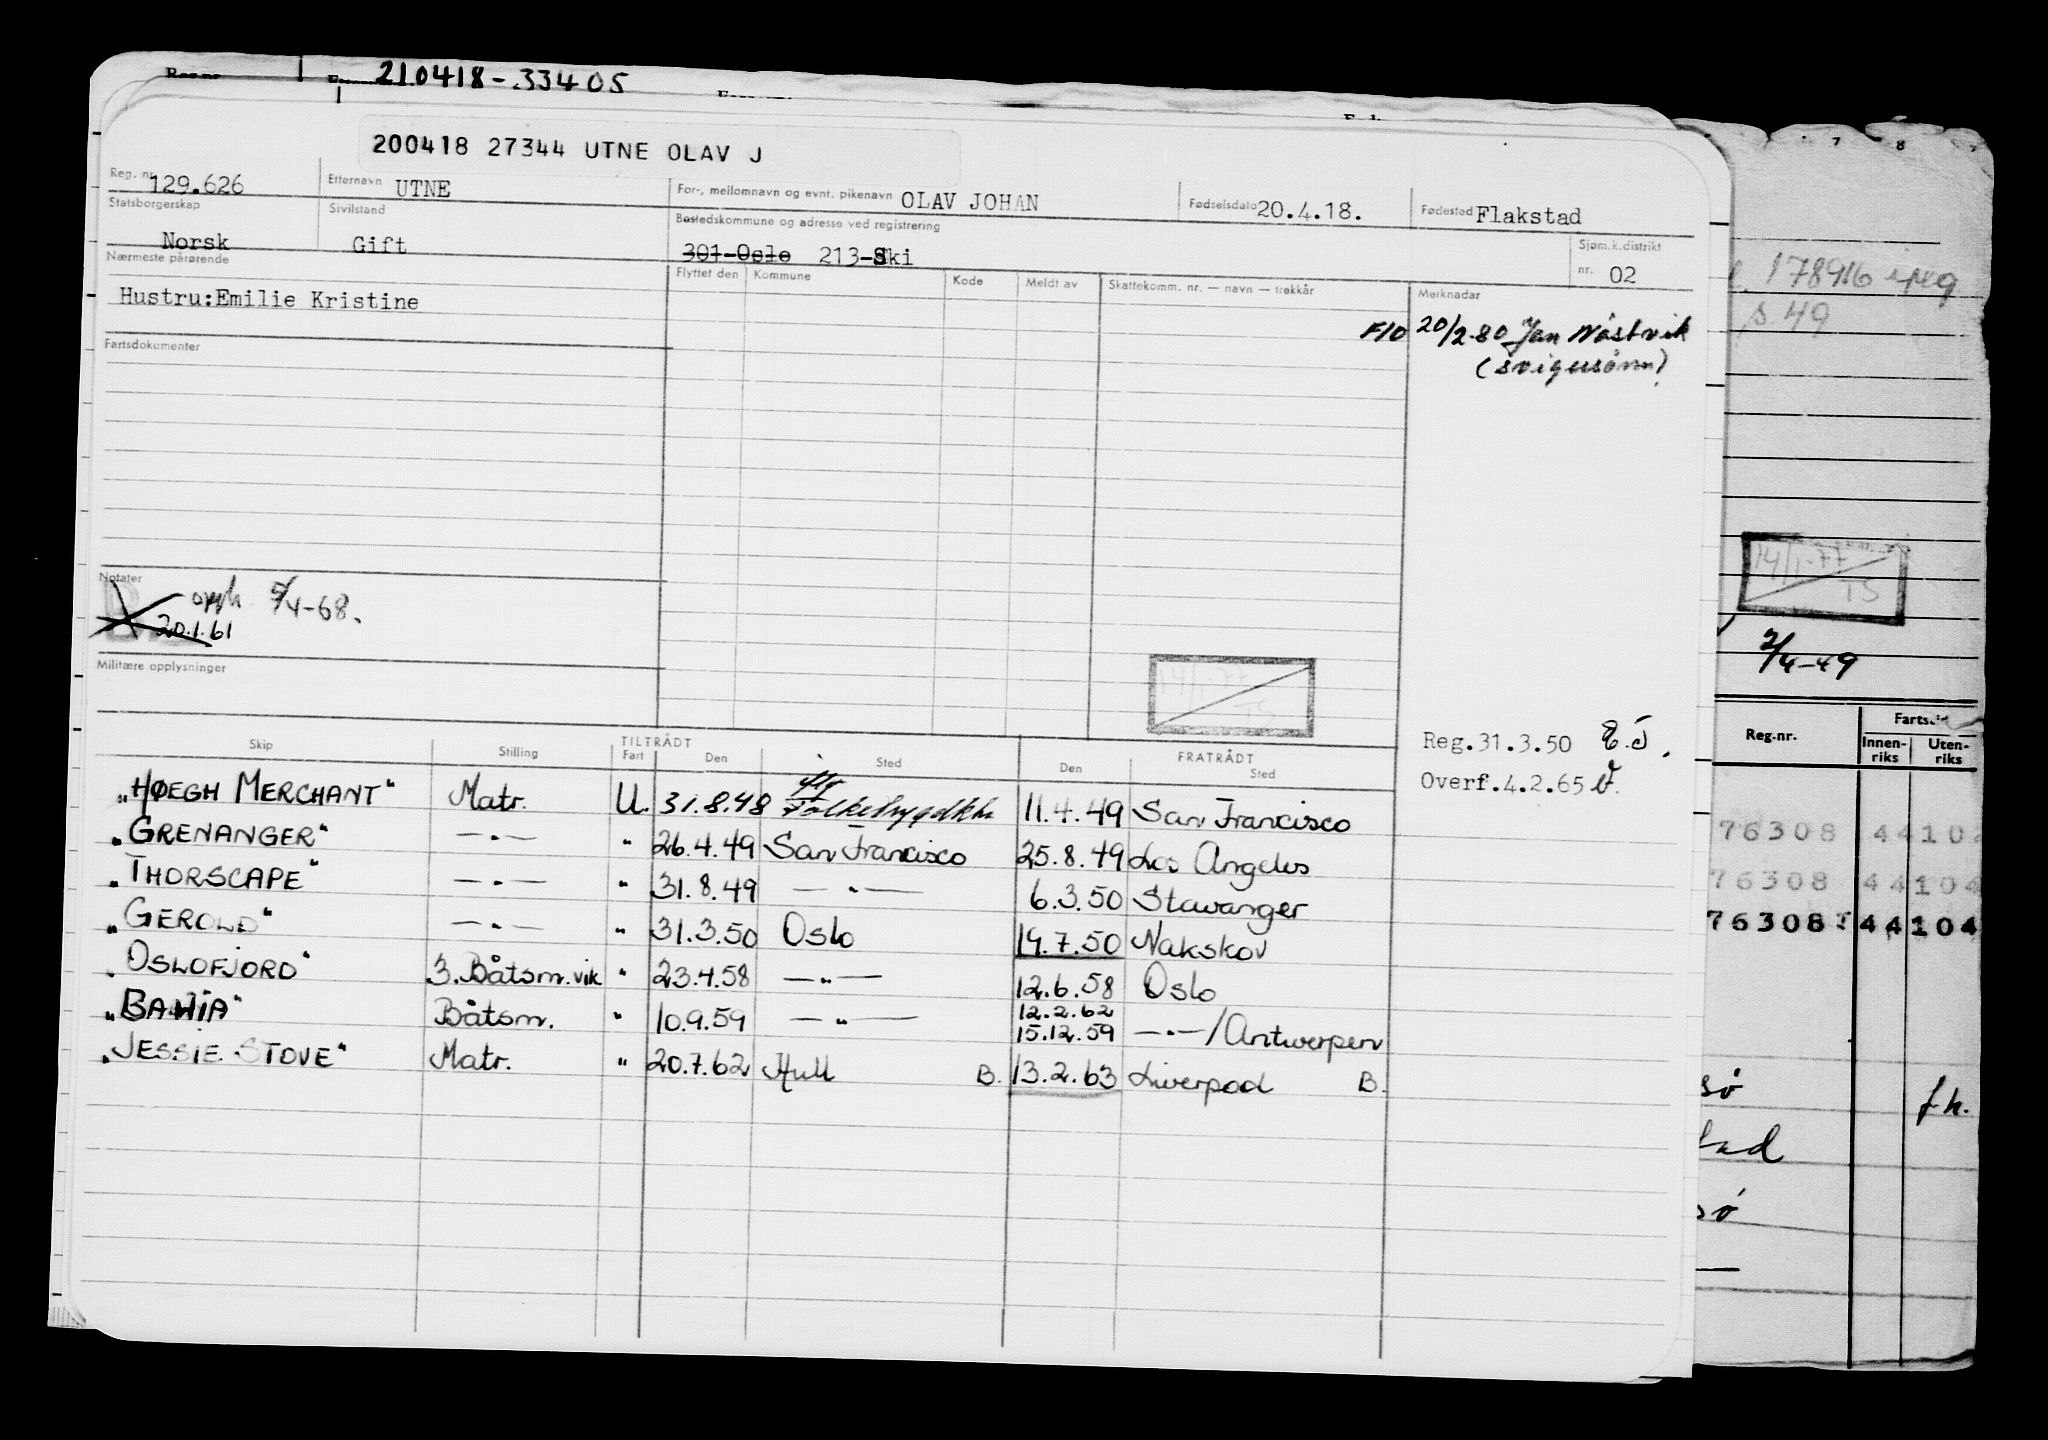 210418-33405
200418 27344 UTNE OLAV J
Reg. nr. 129.626 Etternavn UTNE For-, mellomnavn og evnt. pikenavn OLAV JOHAN Fødselsdato 20.4.18. Fødested Flakstad
Statsborgerskap Norsk Sivilstand Gift Bostedskommune og adresse ved registrering 301-Oslo 213-Ski Sjøm.k.distrikt nr. 02
Nærmeste pårørende Flyttet den Kommune Kode Meldt av Skattekomm. nr. — navn — trekkår Merknader
Hustru:Emilie Kristine
F/O 20/2.80 Jan Nåstvik
(svigersønn)
Fartsdokumenter
Notater
opph. 5/4-68.
20.1.61
Militære opplysninger
14/1-77
TS
Reg.31.3.50
Overf.4.2.65
TILTRÅDT FRATRÅDT
Skip Stilling Fart Den Sted Den Sted
"HØEGH MERCHANT" Matr. U. 31.8.48 11.4.49 San Francisco
"GRENANGER" —„— " 26.4.49 San Francisco 25.8.49 Los Angeles
"THORSCAPE" —„— " 31.8.49 —„— 6.3.50 Stavanger
"GEROLD" —„— " 31.3.50 Oslo 19.7.50 Nakskov
"OSLOFJORD" 3. Båtsm.vik " 23.4.58 —„— 12.6.58 Oslo
12.2.62
"BAHIA" Båtsm. " 10.9.59 —„— 15.12.59 —„—/Antwerpen
"JESSIE STOVE" Matr. " 20.7.62 Hull B. 13.2.63 Liverpool B.
7 8
178916 i reg
s 49
14/1-77
TS
2/4-49
Reg.nr. Innen-riks Uten-riks
76308 44102
76308 44104
76308 44104
sø f.h.